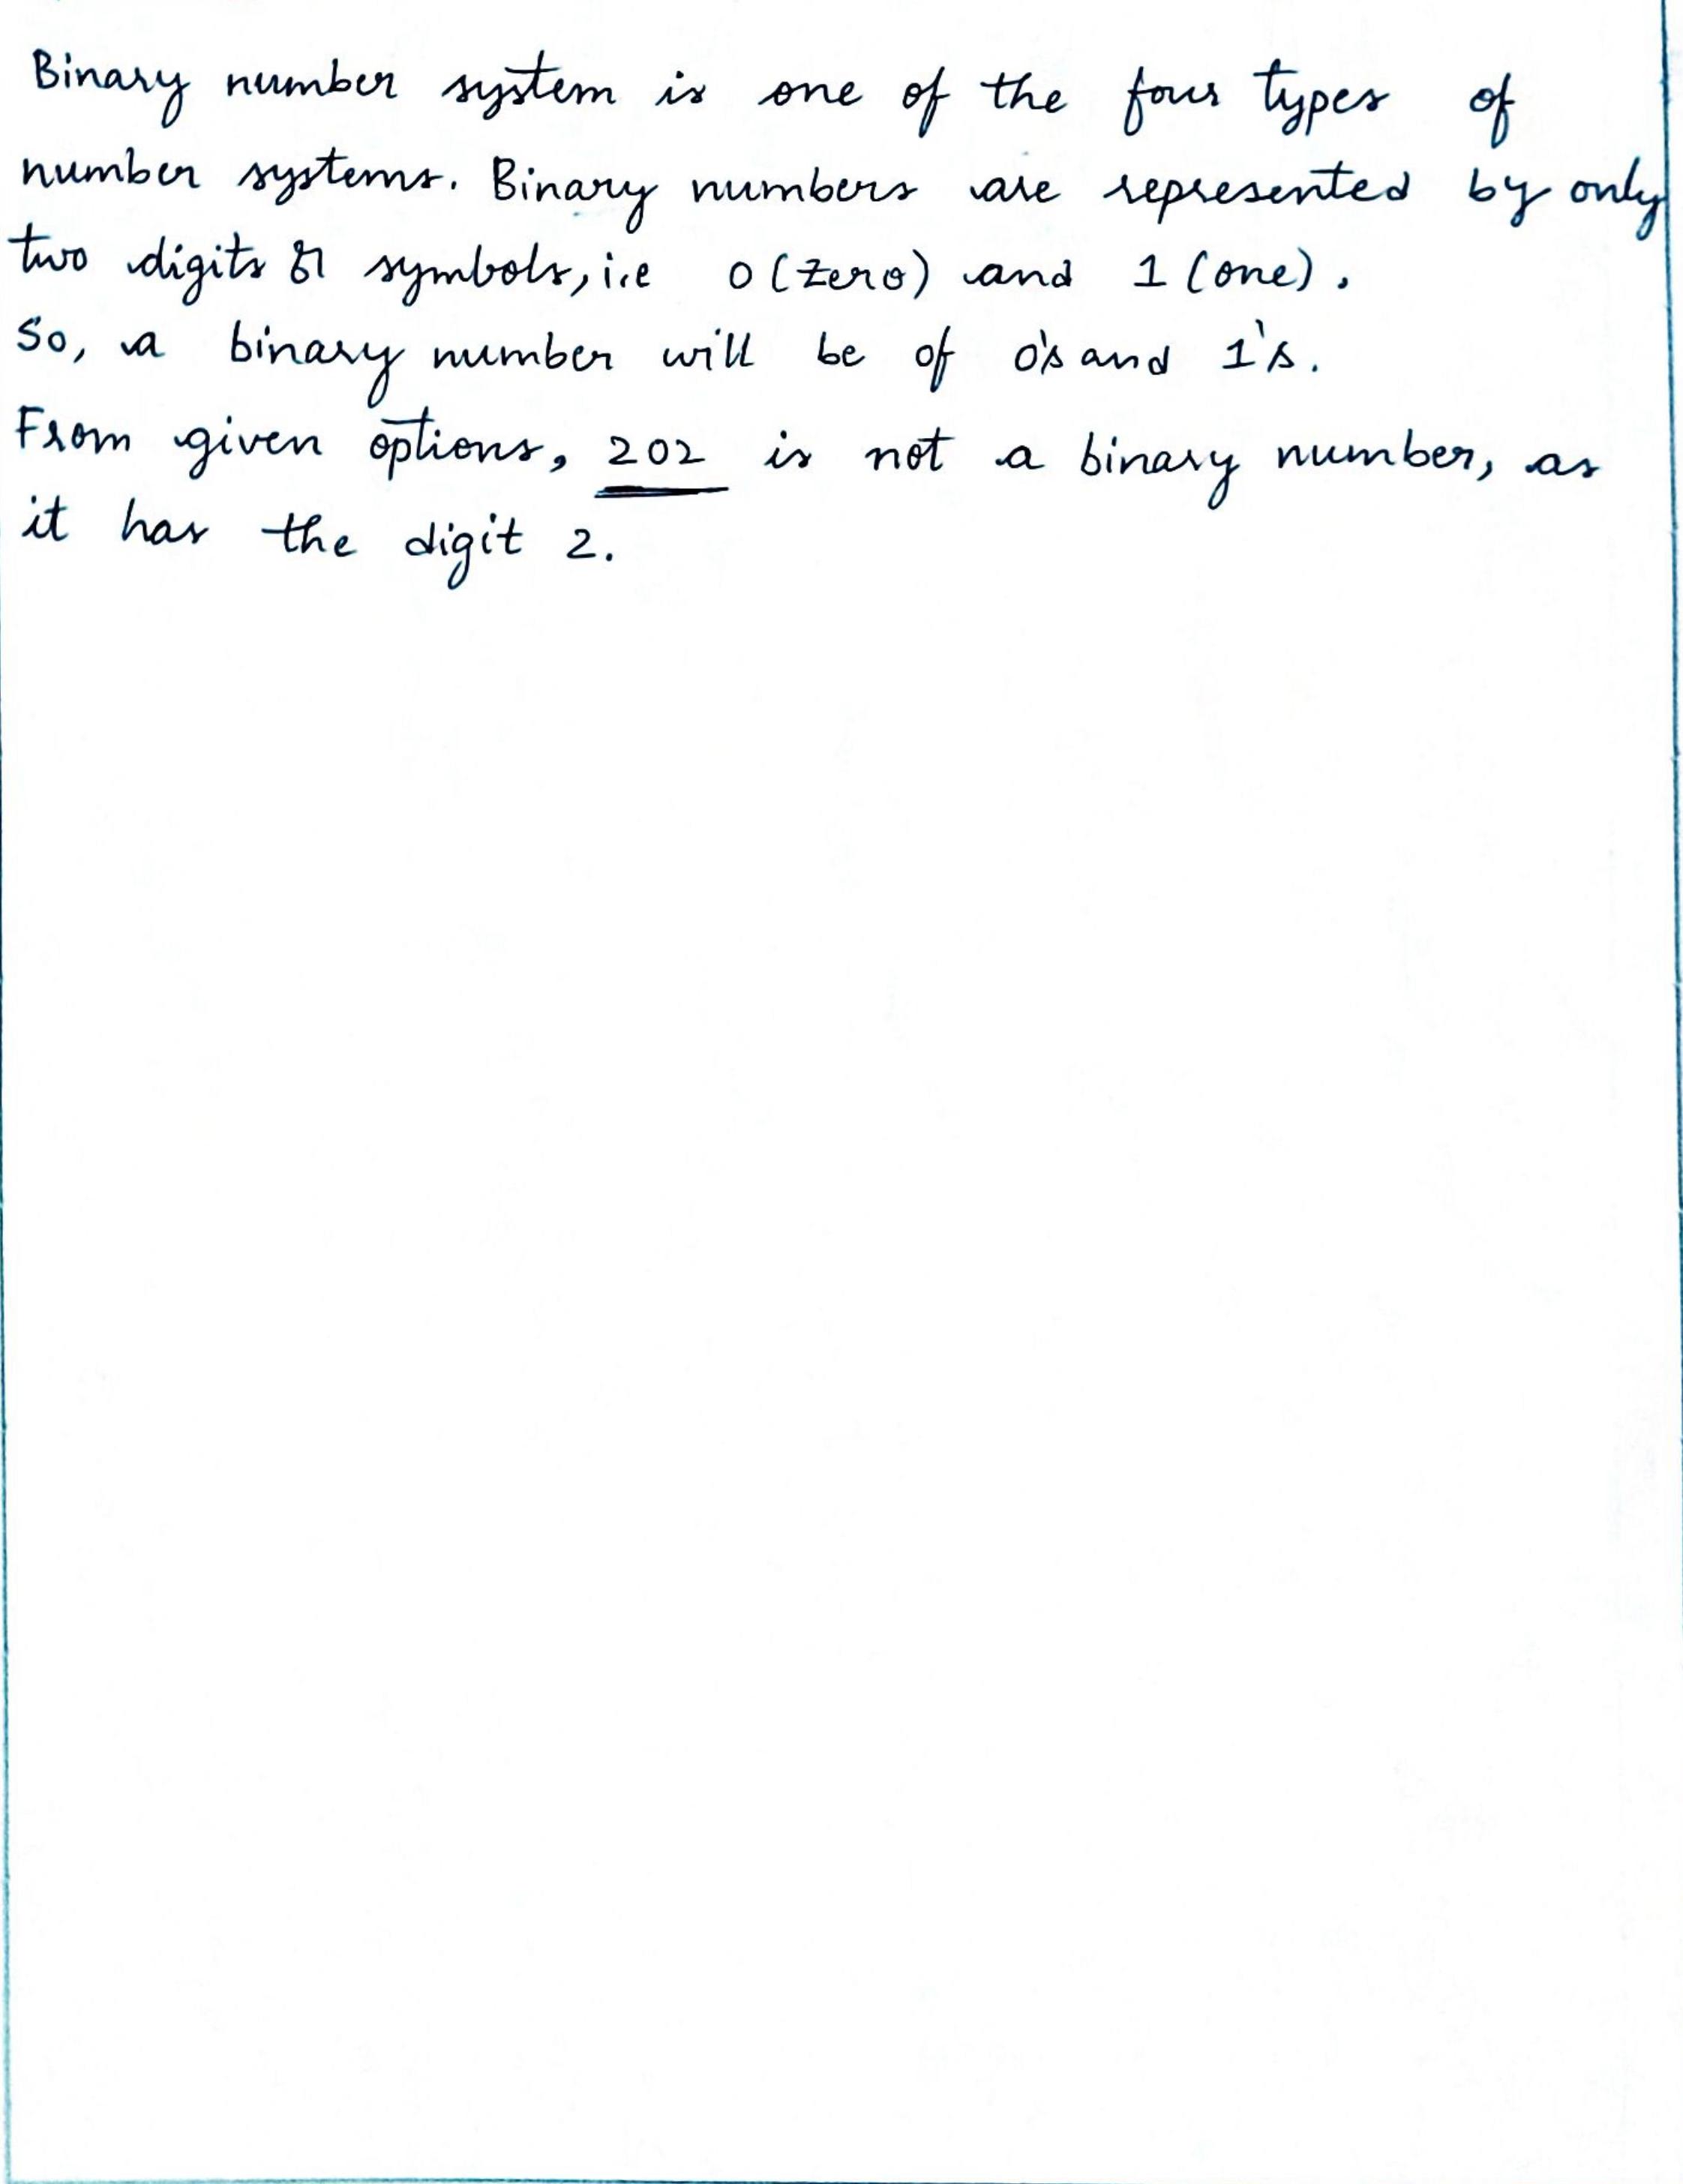 Binary number system is one of the four types of
number systems. Binary numbers are represented by only
two digits or symbols, i.e 0 (zero) and 1 (one).
So, a binary number will be of 0's and 1's.
From given options, 202 is not a binary number, as
it has the digit 2.